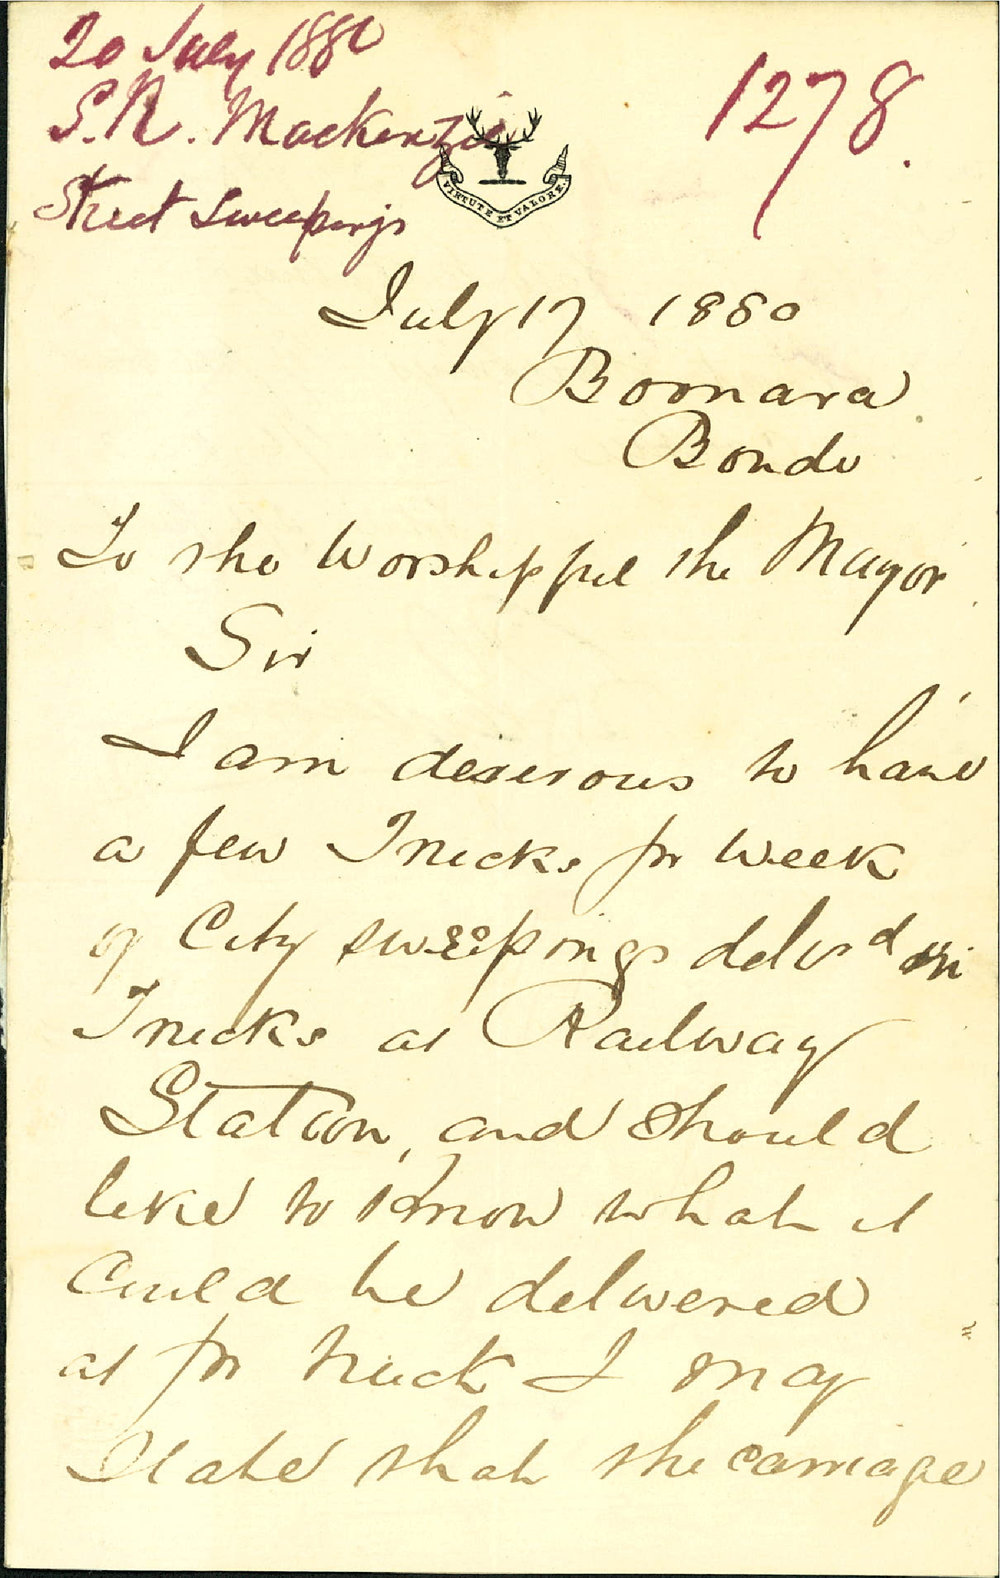 20 July 1880
S. R. Mackenzie
Street Sweepings
1278.
VIRTUTE ET VALORE
July 17 1880
Boonara
Bondi
To the Worshipful the Mayor
Sir
I am desirous to have
a few Trucks per week
of City sweepings delvd in
Trucks at Railway
Station, and should
like to know what it
Could be delivered
at per truck I may
State that the carriage